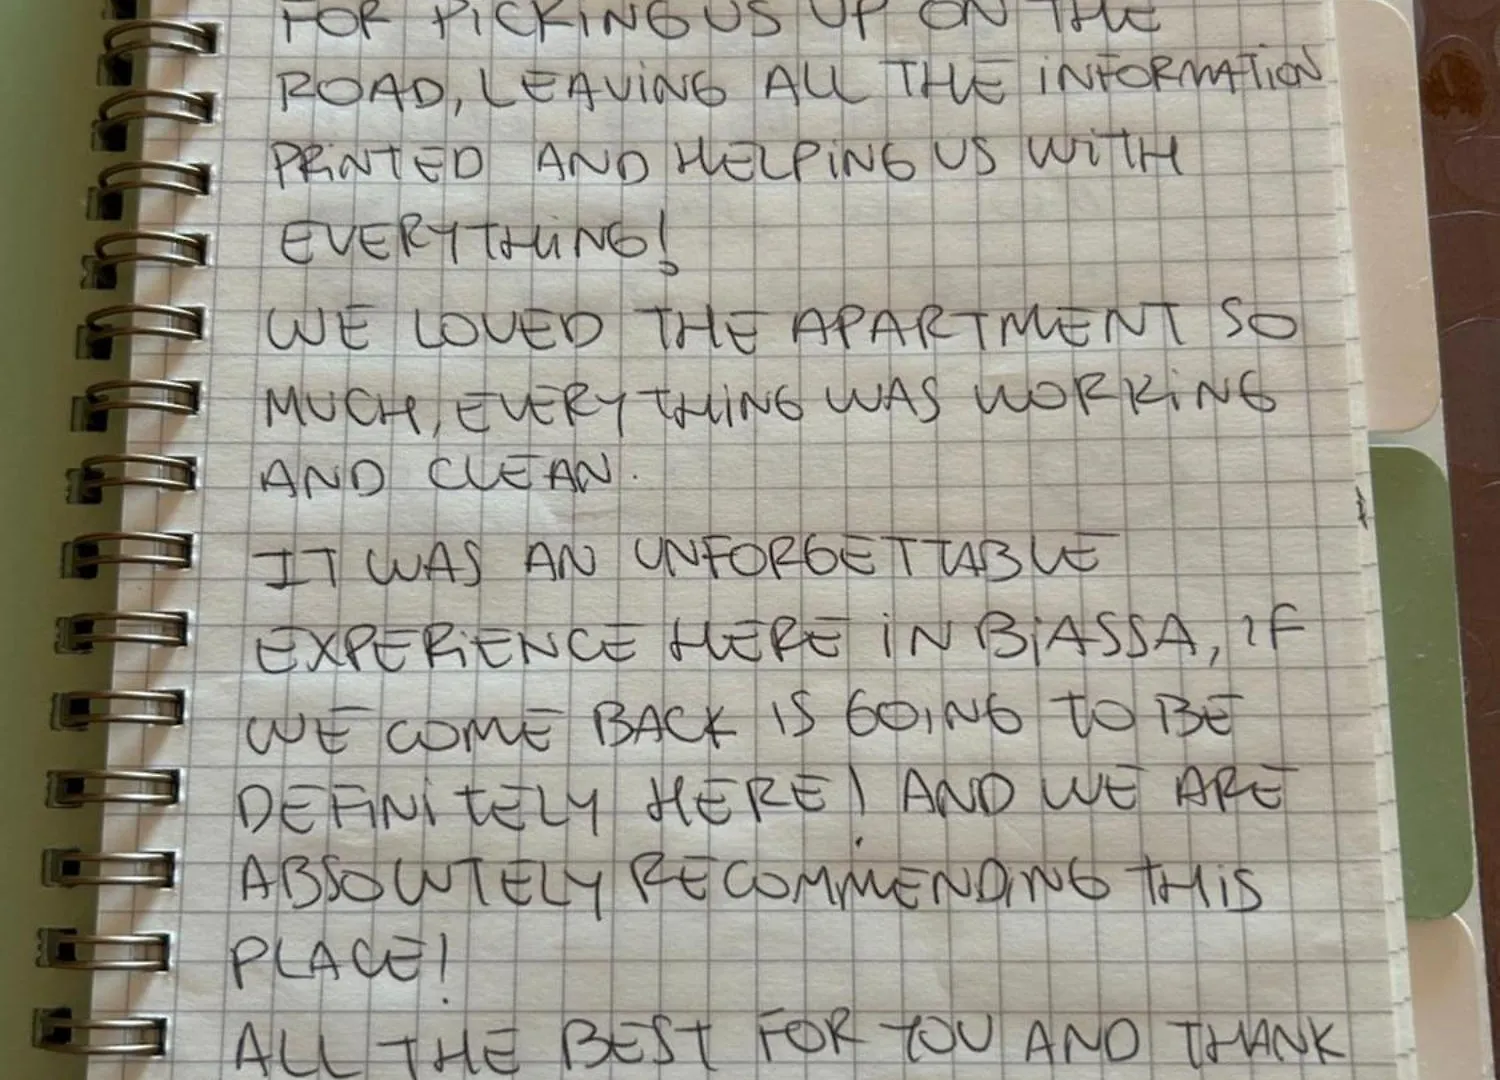 FOR PICKING US UP ON THE
ROAD, LEAVING ALL THE INFORMATION
PRINTED AND HELPING US WITH
EVERYTHING!
WE LOVED THE APARTMENT SO
MUCH, EVERYTHING WAS WORKING
AND CLEAN.
IT WAS AN UNFORGETTABLE
EXPERIENCE HERE IN BIASSA, IF
WE COME BACK IS GOING TO BE
DEFINITELY HERE! AND WE ARE
ABSOLUTELY RECOMMENDING THIS
PLACE!
ALL THE BEST FOR YOU AND THANK